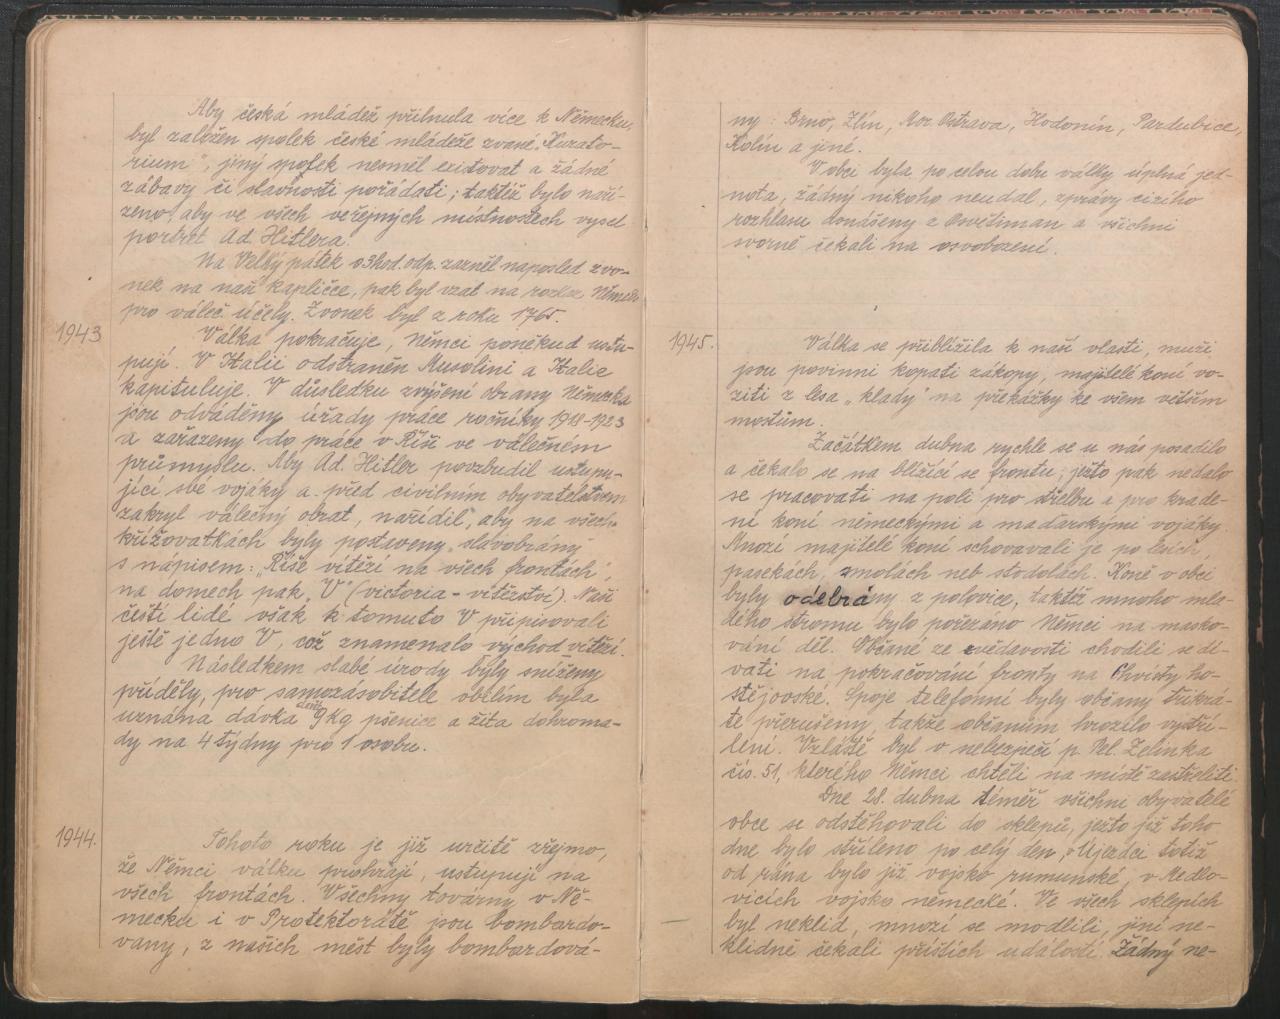 Aby česká mládež přilnula více k Německu,
byl založen spolek české mládeže zvané „Kurato-
rium", jiný spolek nesměl existovat a žádné
zábavy či slavnosti pořádati; taktéž bylo naří-
zeno, aby ve všech veřejných místnostech vysel
portrét Ad. Hitlera.
Na Velký pátek o 3 hod. odp. zazněl naposled zvo-
nek na naší kapličce, pak byl vzat na rozkaz Němců
pro váleč. účely. Zvonek byl z roku 1765.
1943
Válka pokračuje, Němci poněkud ustu-
pují. V Italii odstraněn Musolini a Italie
kapituluje. V důsledku zvýšení obrany Německa
jsou odváděny úřady práce ročníky 1918-1923
a zařazeny do práce v Říši ve válečném
průmyslu. Aby Ad. Hitler povzbudil ustupu-
jící své vojáky a před civilním obyvatelstvem
zakryl válečný obrat, nařídil, aby na všech
křižovatkách byly postaveny „slavobrány"
s nápisem: „Říše vítězí na všech frontách",
na domech pak „V" (victoria - vítězství). Naši
čeští lidé však k tomuto V připisovali
ještě jedno V, což znamenalo východ vítězí.
Následkem slabé úrody byly sníženy
příděly, pro samozásobitele obilím byla
uznána dávka 9 kg pšenice a žita dohroma-
dy na 4 týdny pro 1 osobu.
1944.
Tohoto roku je již určitě zřejmo,
že Němci válku prohrají, ustupují na
všech frontách. Všechny továrny v Ně-
mecku i v Protektorátě jsou bombardo-
vány, z našich měst byly bombardová-
ny: Brno, Zlín, Mor. Ostrava, Hodonín, Pardubice,
Kolín a jiné.
V obci byla po celou dobu války úplná jed-
nota, žádný nikoho neudal, zprávy cizího
rozhlasu donášeny z Osvětiman a všichni
svorně čekali na osvobození.
1945.
Válka se přiblížila k naší vlasti, muži
jsou povinni kopati zákopy, majitelé koní vo-
ziti z lesa „klády" na překážky ke všem větším
mostům.
Začátkem dubna rychle se u nás posadilo
a čekalo se na blížící se frontu, ježto pak nedalo
se pracovati na poli pro střelbu a pro krade-
ní koní německými a maďarskými vojáky.
Mnozí majitelé koní schovavali je po lesích,
pasekách, zmolách neb stodolách. Koně v obci
byly odebrány z polovice, taktéž mnoho mla-
dého stromu bylo pořezano Němci na masko-
vání děl. Občané ze zvědavosti chodili se dí-
vati na pokračování fronty na Chvisty ho-
stějovské. Spoje telefonní byly občany třikrá-
te přerušeny, takže občanům hrozilo vystří-
lení. Vzláště byl v nebezpečí p. Vel. Zelinka
čís. 51, kterého Němci chtěli na místě zastřeliti.
Dne 28. dubna téměř všichni obyvatelé
obce se odstěhovali do sklepů, ježto již toho
dne bylo stříleno po celý den, v Újezdci totiž
od rána bylo již vojsko rumunské, v Medlo-
vicích vojsko německé. Ve všech sklepích
byl neklid, mnozí se modlili, jiní ne-
klidně čekali příštích událostí. Žádný ne-